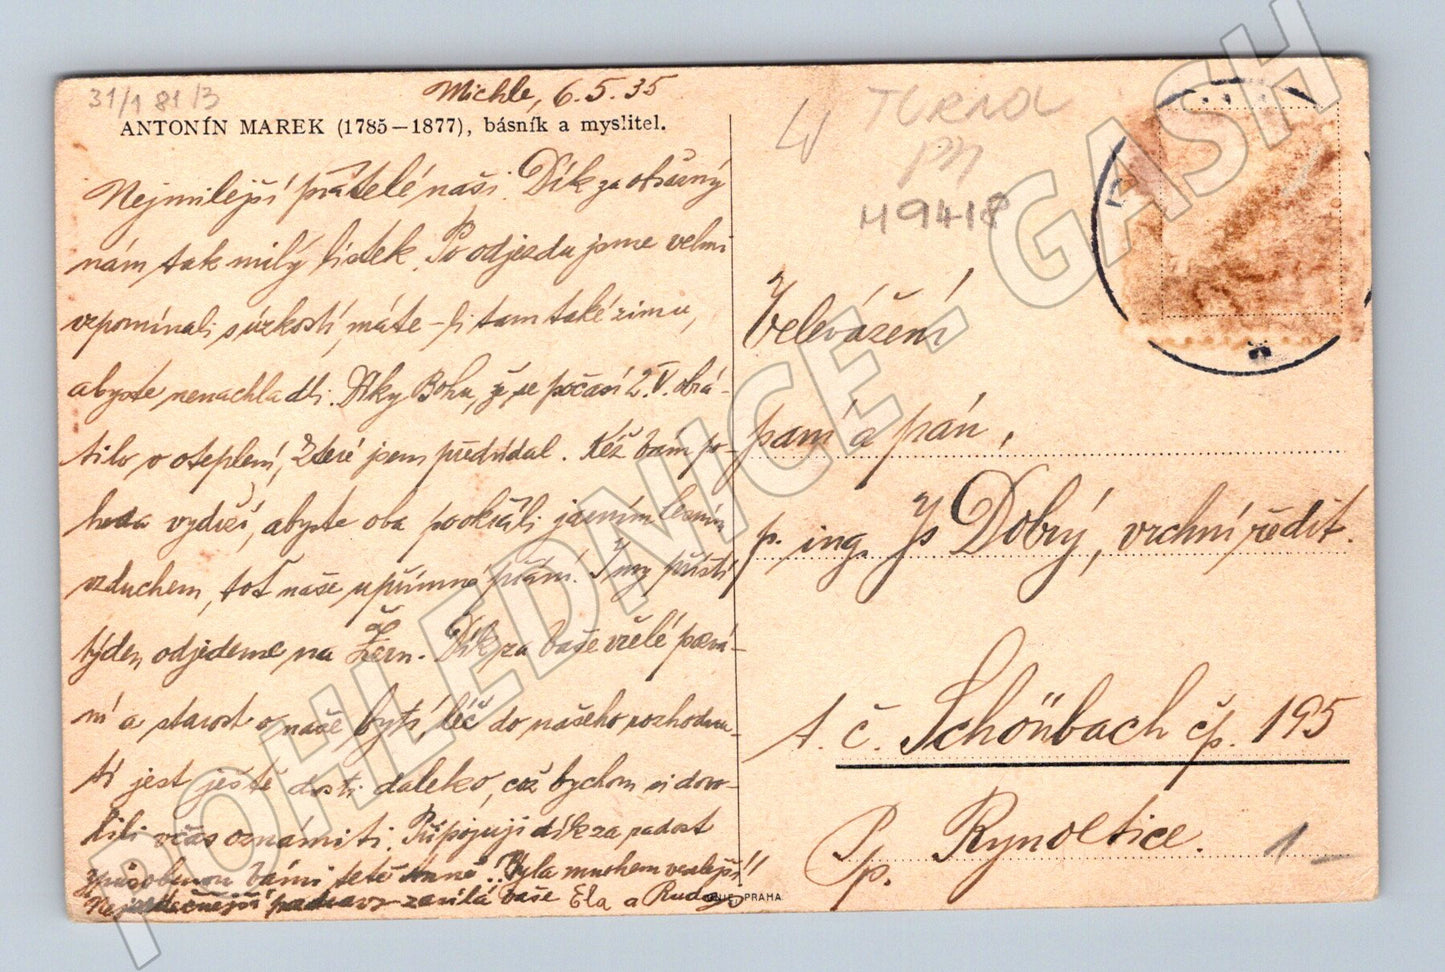 31/1 81/3
Michle, 6.5.35
ANTONÍN MAREK (1785–1877), básník a myslitel.
Nejmilejší přátelé naši. Dík za obšírný
nám tak milý lístek. Po odjezdu jsme velmi
vzpomínali s úzkostí, máte-li tam také zimu,
abyste nenachladli. Díky Bohu, že se počasí 2.V. obrá-
tilo v oteplení, které jsem předvídal. Kéž Vám po-
hoda vydrží, abyste oba pookřáli jarním lesním
vzduchem, toť naše upřímné přání. I my příští
týden odjedeme na Žern. Dík za Vaše vřelé pozvá-
ní a starost o naše bytí, leč do našeho rozhodnu-
tí jest ještě dosti daleko, což bychom si dovo-
lili včas oznámiti. Připojuji dík za radost
způsobenou Vámi tetě Anně. Byla mnohem veselejší!
Nejsrdečnější pozdrav zasílá Vaše Ela a Rudolf
TURNOV
PM
49418
Velevážení
paní a pán,
p. ing. Js Dobrý, vrchní ředit.
t. č. Schönbach čp. 195
Pp. Rynoltice.
1-
UNIE, PRAHA
POHLEDNICE - GASH